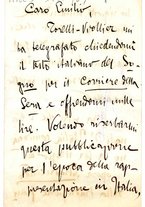 Caro Emilio
Torelli-Viollier mi
ha telegrafato chiedendomi
il testo italiano del So-
gno per il Corriere della
Sera e offrendomi mille
lire. Volendo riserbarmi
questa pubblicazione
per l'epoca della rap-
presentazione in Italia,